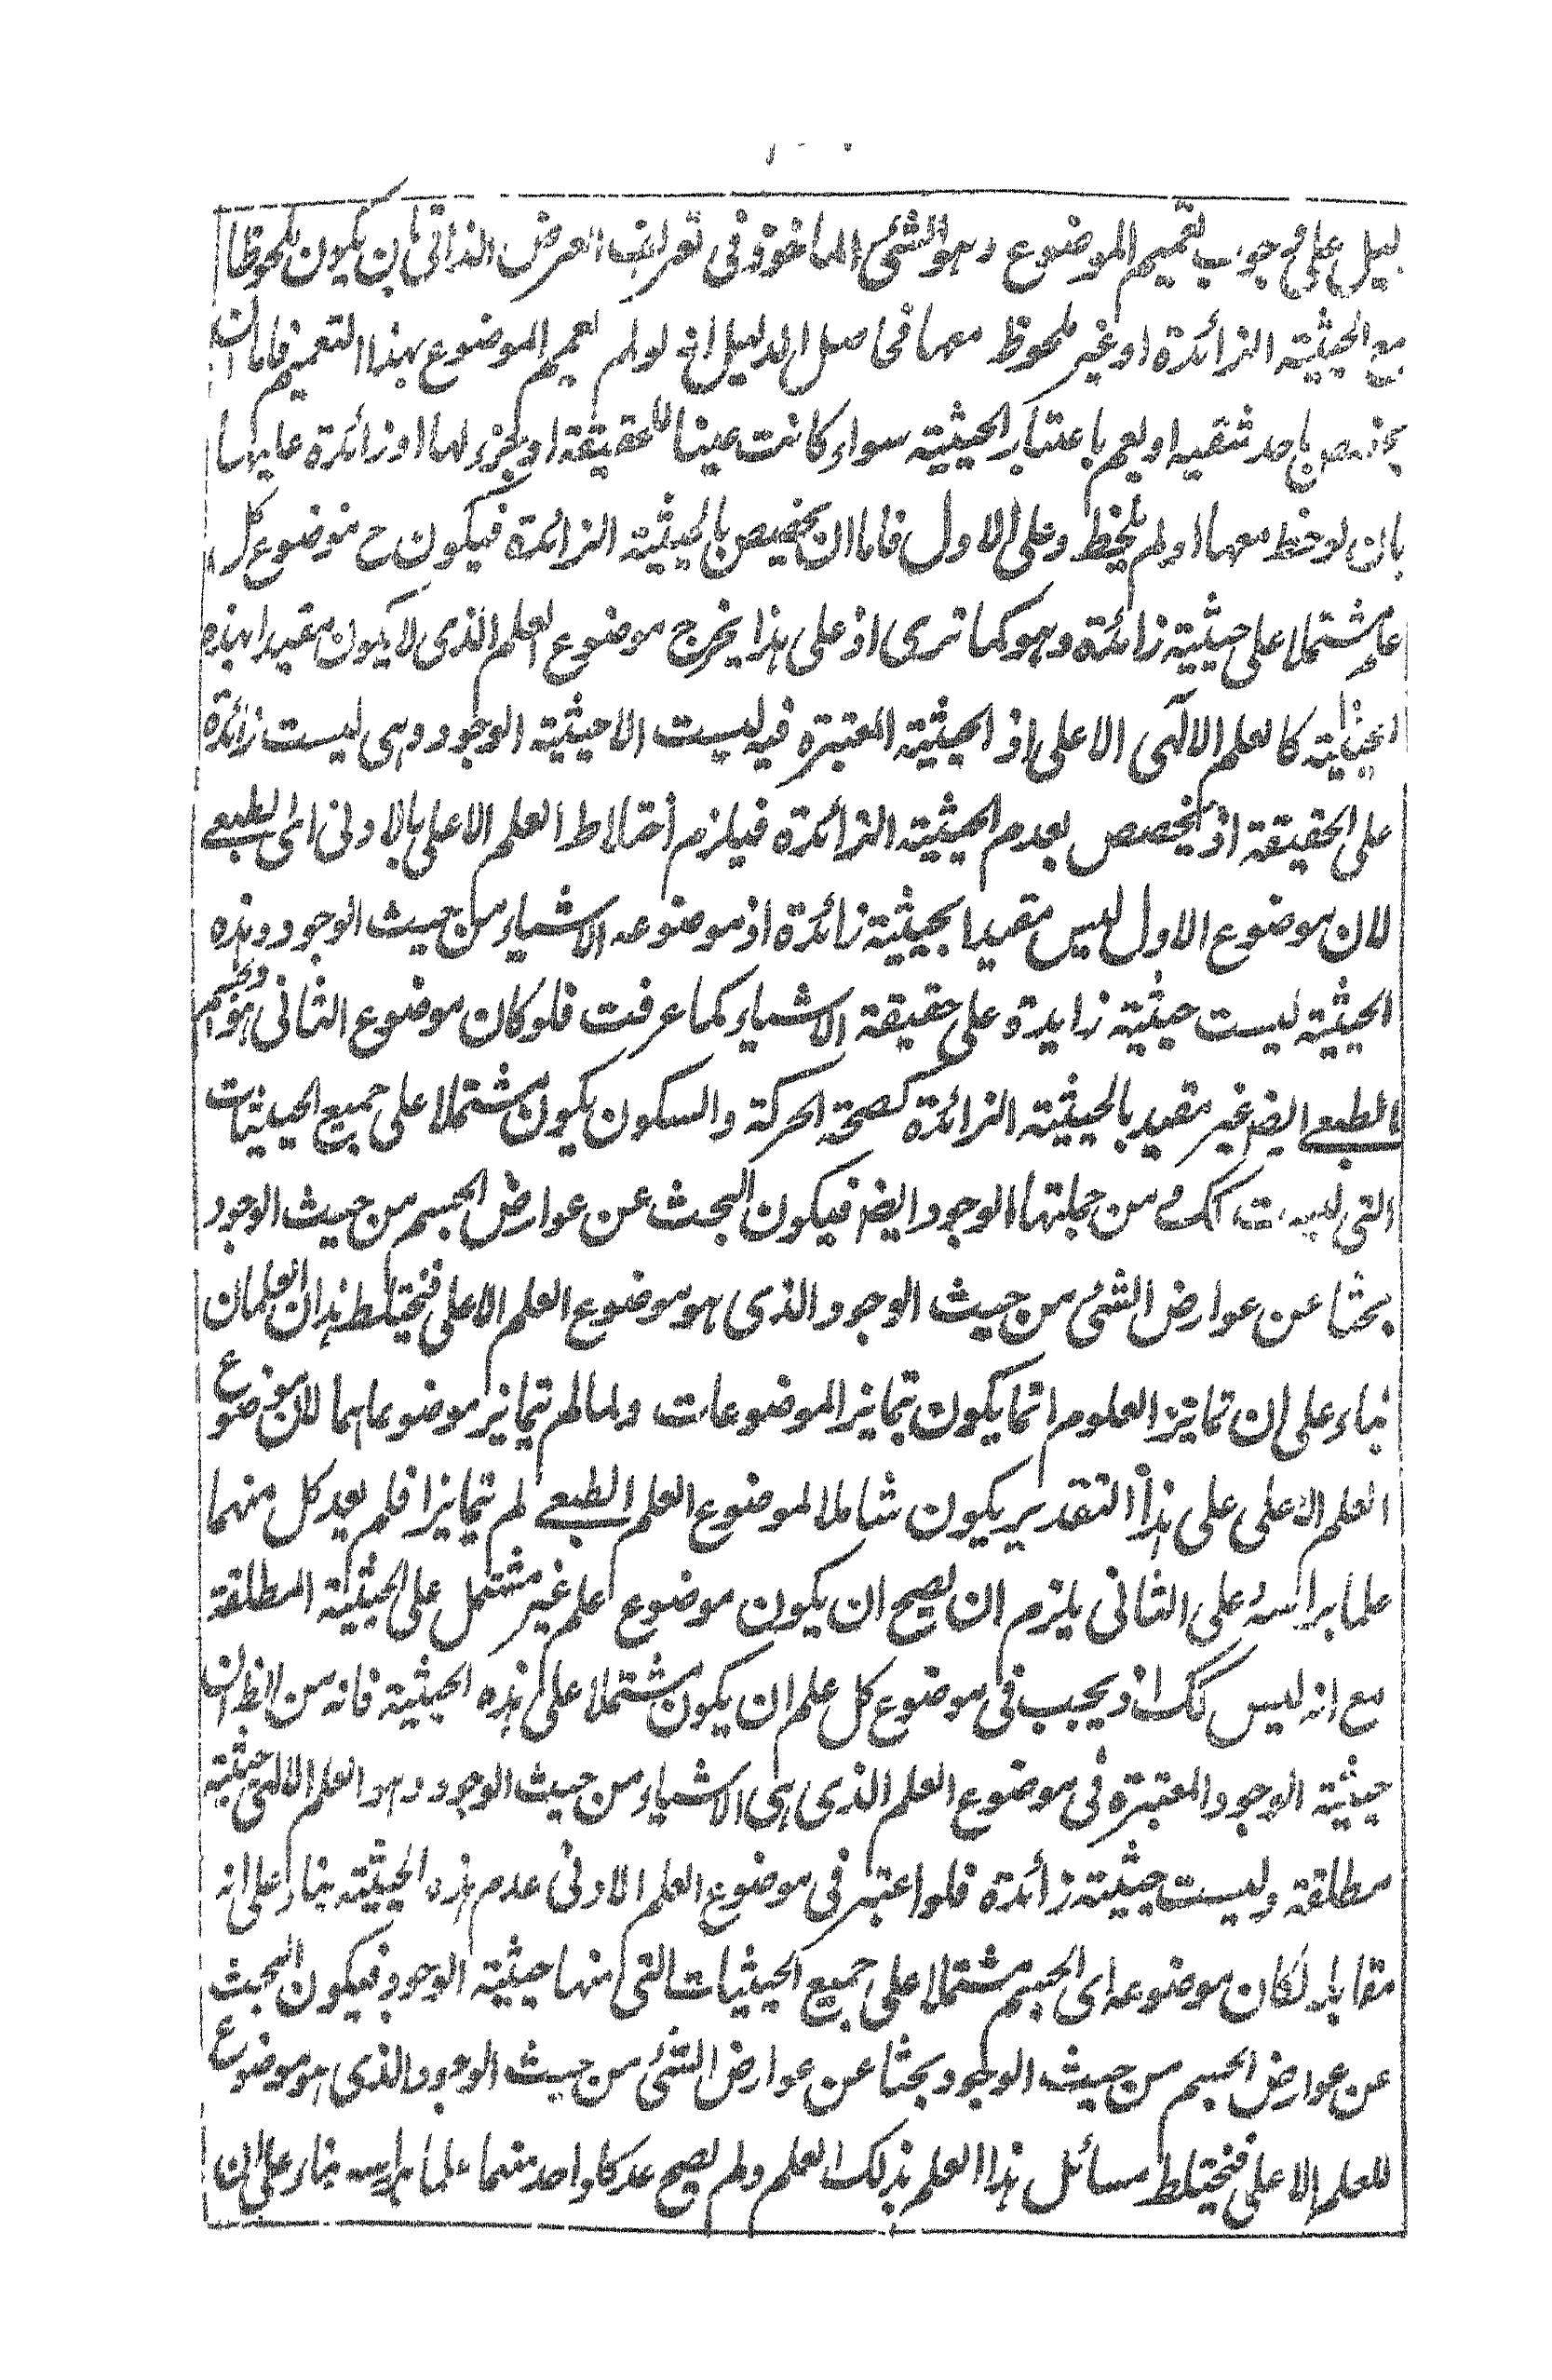 ليل على وجوب تعميم الموضوع وهو الشئ الماخوذ فى تعريف العرض الذاتى بان يكون ملحوظا
مع الحيثية الزائدة او غير ملحوظ معها فحاصل الدليل انه لو لم يعمم الموضوع بهذا التعميم فاما ان
يخصص باحد شقيه او يعم باعتبار الحيثية سواء كانت عينا للحقيقة او بجزء لها او زائدة عليها
بان لوحظ معها او لم يلحظ وعلى الاول فاما ان يخصص بالحيثية الزائدة فيكون ح موضوع كل
علم مشتملا على حيثية زائدة وهو كما ترى اذ على هذا يخرج موضوع العلم الذى لا يكون مقيدا بهذه
الحيثية كالعلم الآلهى الاعلى اذ الحيثية المعتبرة فيه ليست الا حيثية الوجود وهى ليست زائدة
على الحقيقة او يخصص بعدم الحيثية الزائدة فيلزم اختلاط العلم الاعلى بالادنى اى الطبعے
لان موضوع الاول ليس مقيدا بحيثية زائدة اذ موضوعه الاشياء من حيث الوجود وهذه
الحيثية ليست حيثية زايدة على حقيقة الاشياء كما عرفت فلو كان موضوع الثانى وهو الجسم
الطبعے ايضا غير مقيد بالحيثية الزائدة كصحة الحركة والسكون يكون مشتملا على جميع الحيثيات
التى ليست كك ومن جملتها الوجود ايضا فيكون البحث عن عوارض الجسم من حيث الوجود
بحثا عن عوارض الشئ من حيث الوجود الذى هو موضوع العلم الاعلى فيختلط هذان العلمان
بناء على ان تمايز العلوم انما يكون بتمايز الموضوعات ولما لم يتمايز موضوعاهما لان موضوع
العلم الاعلى على هذا التقدير يكون شاملا لموضوع العلم الطبعے لم يتمايزا فلم يعد كل منهما
علما براسه وعلى الثانى يلزم ان يصح ان يكون موضوع علم غير مشتمل على الحيثية المطلقة
مع انه ليس كك اذ يجب فى موضوع كل علم ان يكون مشتملا على هذه الحيثية فانه من الظ ان
حيثية الوجود المعتبرة فى موضوع العلم الذى هى الاشياء من حيث الوجود وهو العلم الالهى حيثية
مطلقة وليست حيثية زائدة فلو اعتبر فى موضوع العلم الادنى عدم هذه الحيثية بناء على انه
مقابله لكان موضوعه اى الجسم مشتملا على جميع الحيثيات التى منها حيثية الوجود فيكون البحث
عن عوارض الجسم من حيث الوجود بحثا عن عوارض الشئ من حيث الوجود الذى هو موضوع
للعلم الاعلى فيختلط مسائل هذا العلم بذلك العلم ولم يصح عد كل واحد منهما علما براسه بناء على ان